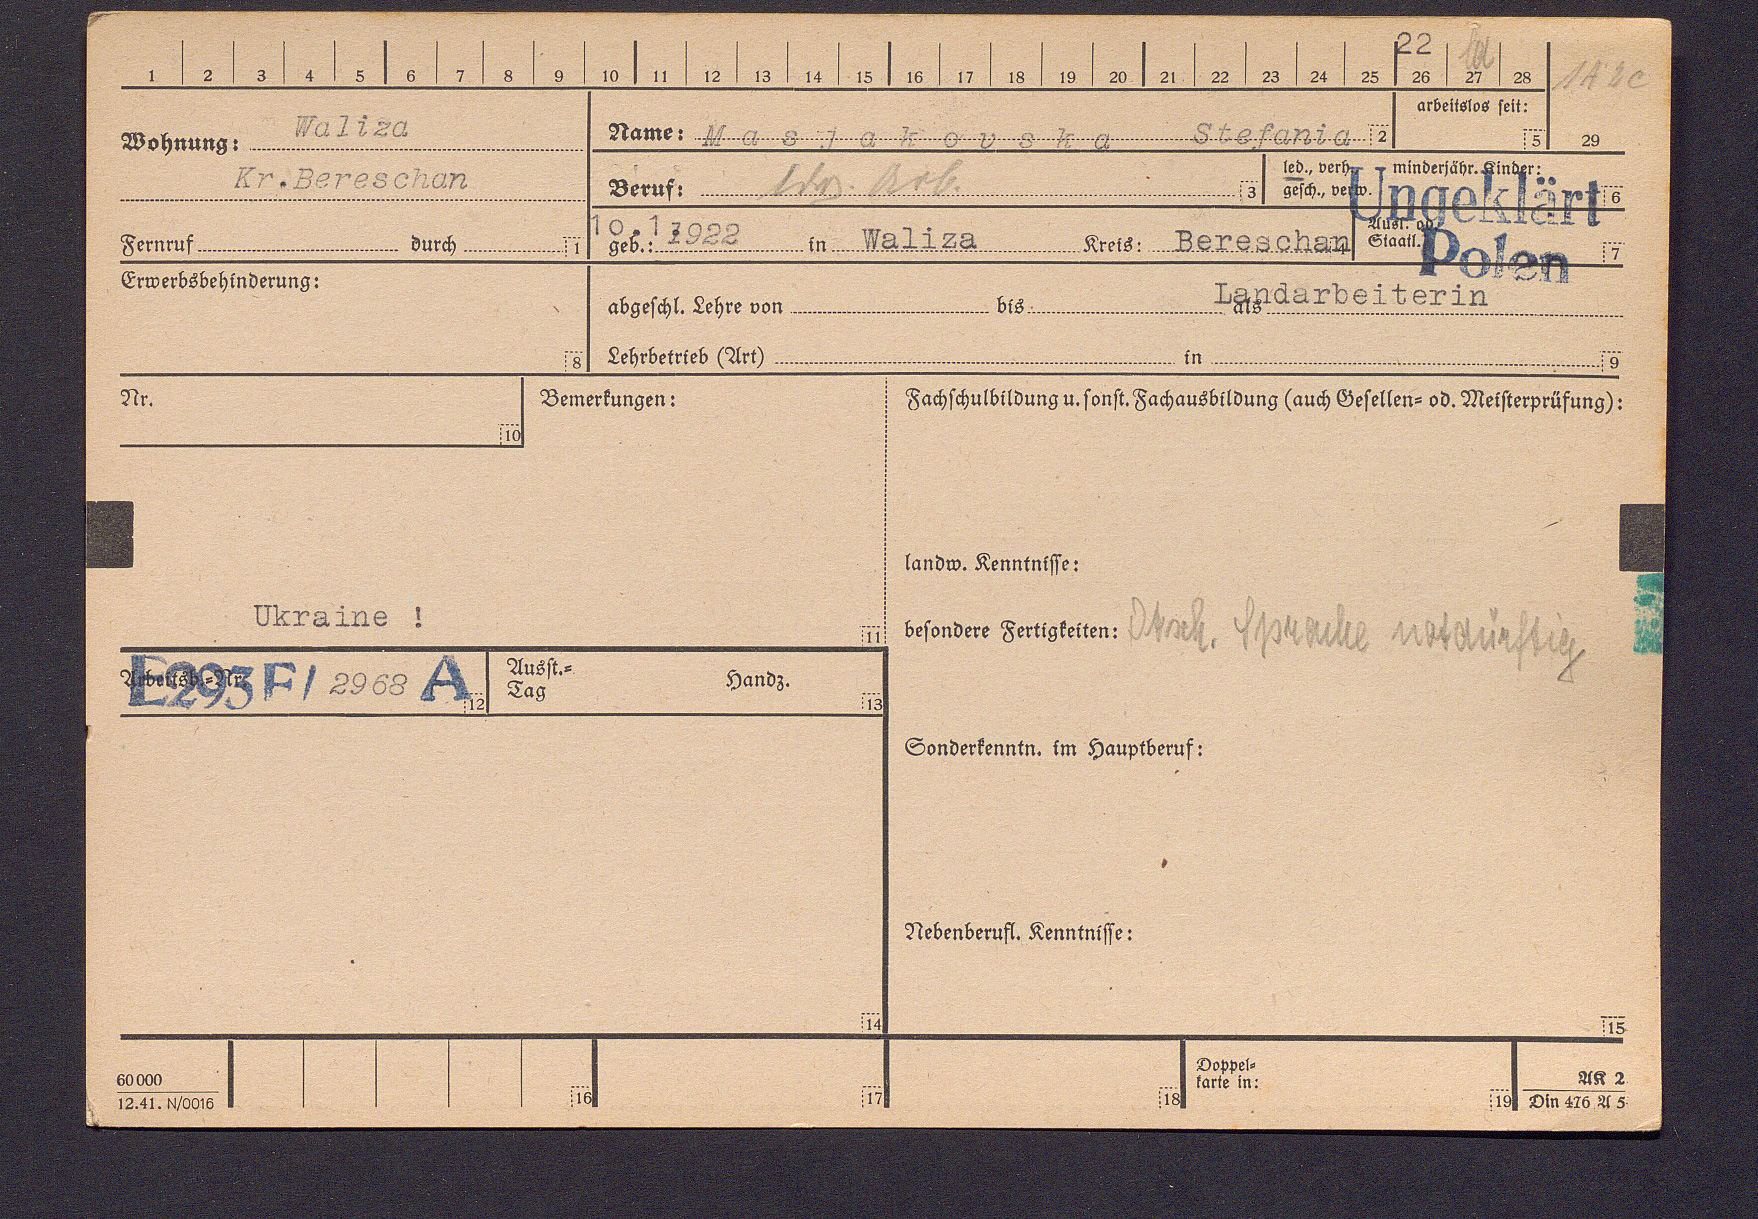 22
1 2 3 4 5 6 7 8 9 10 11 12 13 14 15 16 17 18 19 20 21 22 23 24 25 26 27 28
arbeitslos seit:
5 29
Wohnung: Waliza
Kr.Bereschan
Name: Masjakovska Stefania 2
Beruf: Arb. 3
led., verh., minderjähr. Kinder:
gesch., verw. 6
Ungeklärt
Fernruf durch 1
10.1.1922
geb.: in Waliza Kreis: Bereschan
4
Ausl. od.
Staatl. 7
Polen
Erwerbsbehinderung:
8
Landarbeiterin
abgeschl. Lehre von bis als
Lehrbetrieb (Art) in 9
Nr.
10
Bemerkungen:
Fachschulbildung u. sonst. Fachausbildung (auch Gesellen= od. Meisterprüfung):
landw. Kenntnisse:
Ukraine !
11
besondere Fertigkeiten: Dtsch. Sprache notdürftig
Arbeitsb.=Nr. E293F/ 2968 A 12
Ausst.=
Tag
Handz.
13
Sonderkenntn. im Hauptberuf:
Nebenberufl. Kenntnisse:
14
15
60000
12.41. N/0016
16 17 18
Doppel=
karte in:
19
AK 2
Din 476 A 5